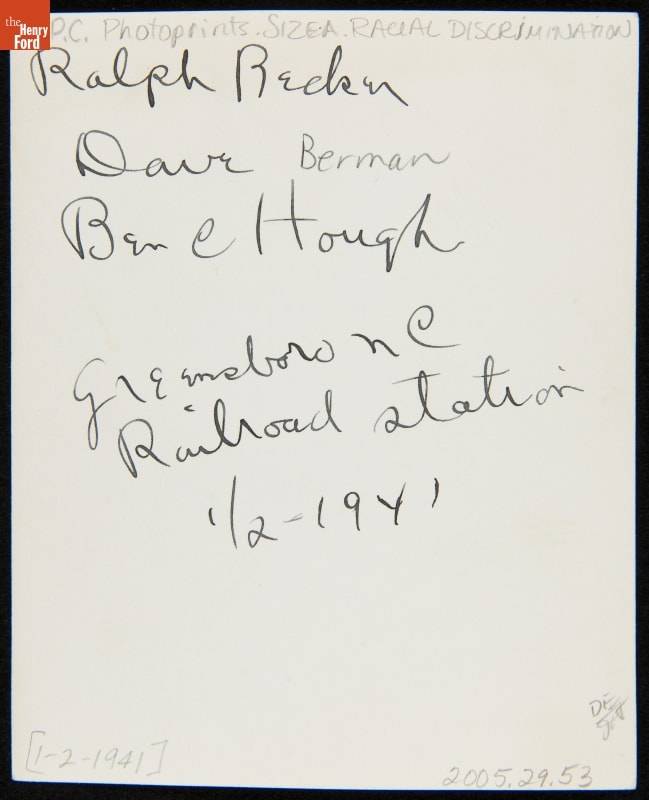 the
Henry
Ford
P.C. Photoprints. SIZE A. RACIAL DISCRIMINATION
Ralph Becker
Dave Berman
Ben C Hough
Greensboro n C
Railroad station
1/2-1941
[1-2-1941]
2005.29.53